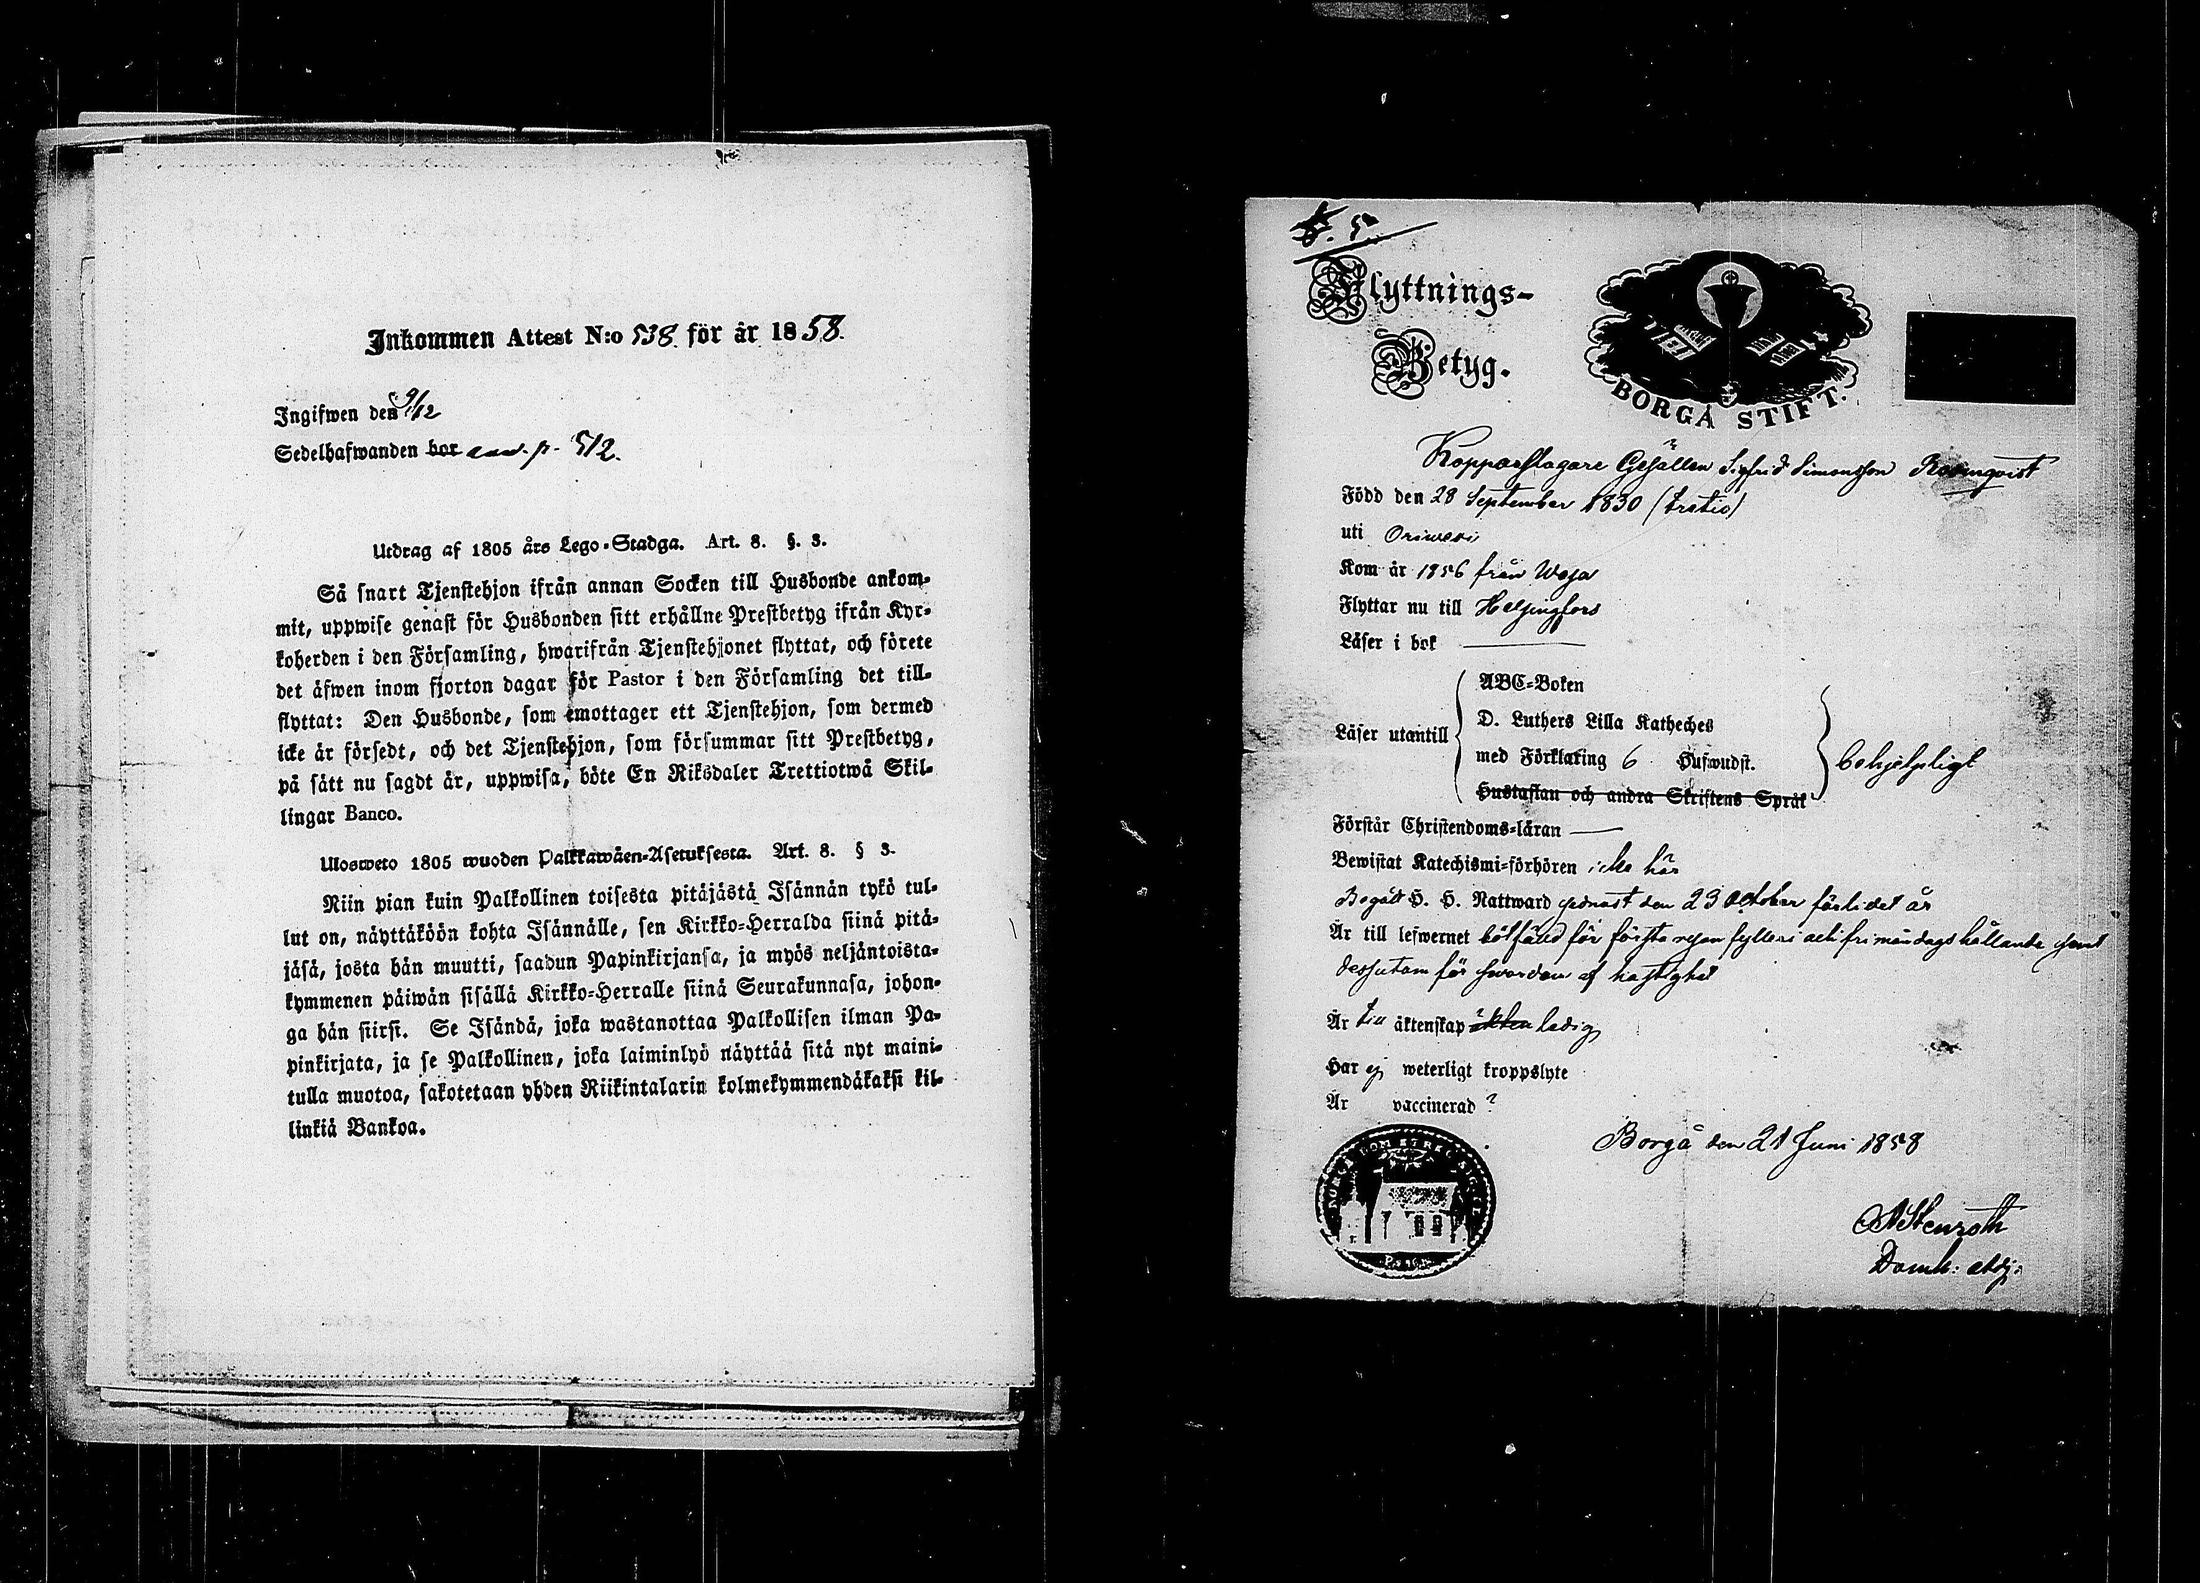 Inkommen Attest N:o 538. för år 1858.
Ingifwen den 9/12
Sedelhafwanden bor anv. p. 512.
Utdrag af 1805 års Lego-Stadga. Art. 8. §. 3.
Så snart Tjenstehjon ifrån annan Socken till Husbonde ankom-
mit, uppwise genast för Husbonden sitt erhållne Prestbetyg ifrån Kyr-
koherden i den Församling, hwarifrån Tjenstehjonet flyttat, och förete
det äfwen inom fjorton dagar för Pastor i den Församling det till-
flyttat: Den Husbonde, som emottager ett Tjenstehjon, som dermed
icke är försedt, och det Tjenstehjon, som försummar sitt Prestbetyg,
på sätt nu sagdt är, uppwisa, böte En Riksdaler Trettiotwå Skil-
lingar Banco.
Ulosweto 1805 wuoden Palkkawäen-Asetuksesta. Art. 8. § 3.
Niin pian kuin Palkollinen toisesta pitäjästä Isännän tykö tul-
lut on, näyttäköön kohta Isännälle, sen Kirkko-Herralda siinä pitä-
jäsä, josta hän muutti, saadun Papinkirjansa, ja myös neljäntoista-
kymmenen päiwän sisällä Kirkko-Herralle siinä Seurakunnasa, johon-
ga hän siirsi. Se Isändä, joka wastanottaa Palkollisen ilman Pa-
pinkirjata, ja se Palkollinen, joka laiminlyö näyttää sitä nyt maini-
tulla muotoa, sakotetaan yhden Riikintalarin kolmekymmendäkaksi kil-
linkiä Bankoa.
5.
Flyttnings-
Betyg.
BORGÅ STIFT.
Kopparslagare Gesällen Sigfrid Simonsson Rosenqvist
Född den 28 September 1830 (tratio)
uti Oriwesi
Kom år 1856 från Wasa
Flyttar nu till Helsingfors
Läser i bok
ABC-Boken
D. Luthers Lilla Katheches
Läser utantill
med Förklaring 6 Hufwudst.
behjelpligt
Hustaflan och andra Skriftens Språk
Förstår Christendoms-läran
Bewistat Katechismi-förhören icke här
Begått H. H. Nattward sednast den 23 October förlidet år
Är till lefwernet bötfäld för första resan fylleri och frimåndags hållande samt
dessutom för swordom af hastighet
Är till äktenskap ledig
Har ej weterligt kroppslyte
Är vaccinerad?
Borgå den 21 Juni 1858
A Stenroth
Domk: adj: